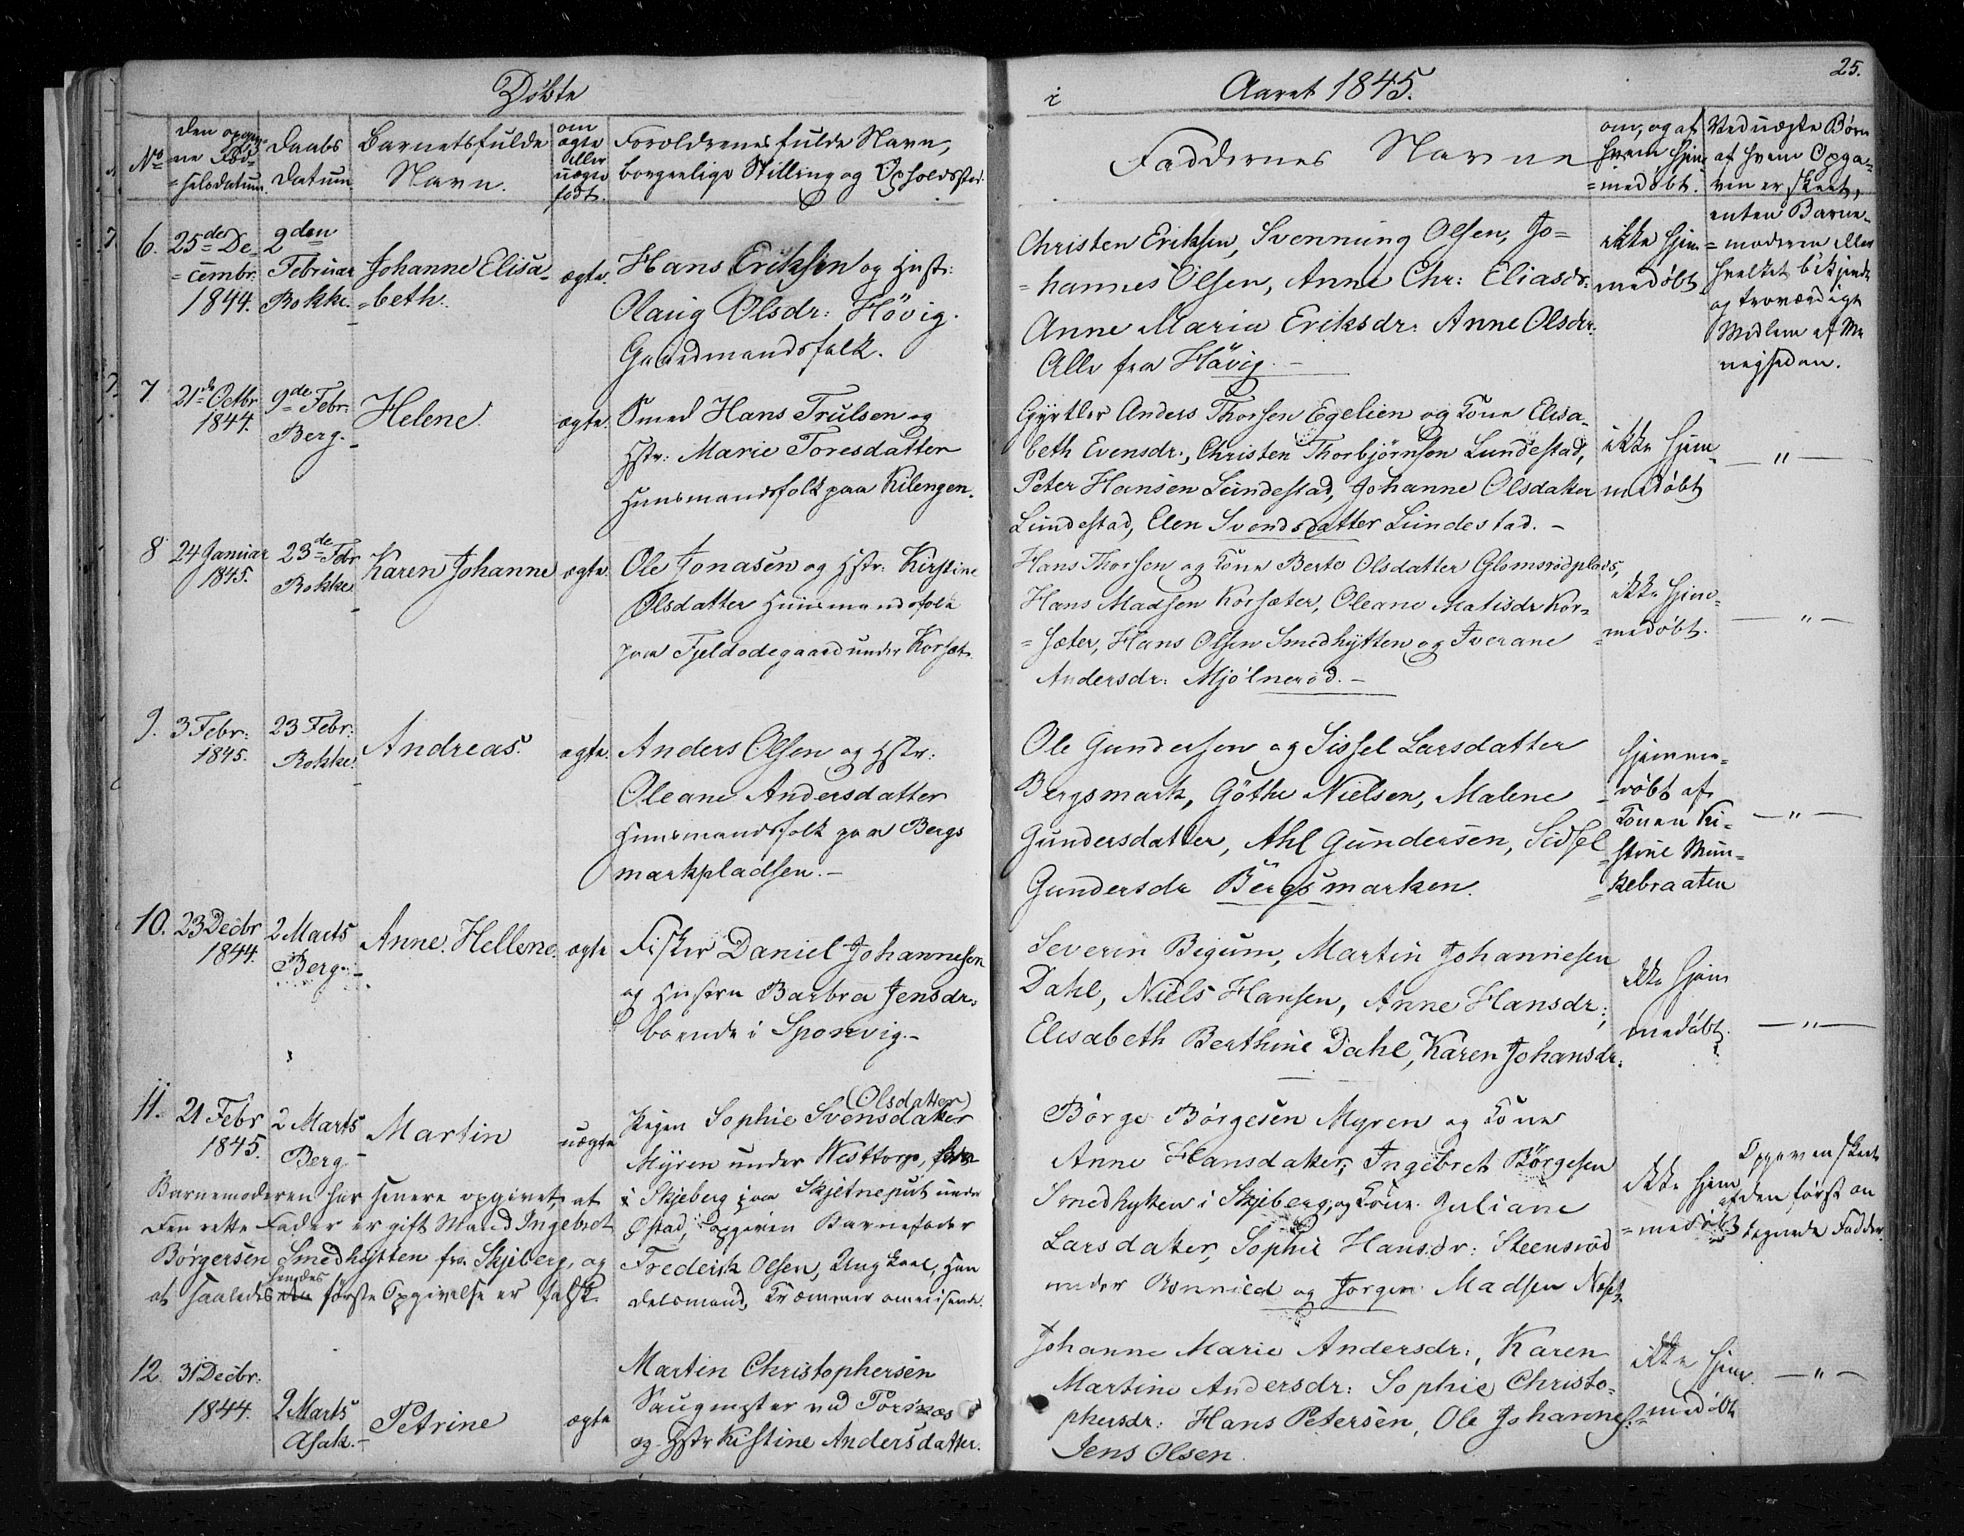 Døbte
i
Aaret 1845.
25.
No
Den opgiv-
ne Fød-
selsdatum
Daabs
Datum.
Barnets fulde
Navn.
om
ægte
eller
uægte
født.
Forældrenes fulde Navn,
borgerlige Stilling og Opholdssted.
Faddernes Navne
om, og af
hvem hjem-
medøbt.
Ved uægte Børn
af hvem Opga-
ven er skeet,
enten Barne-
moderen eller
hvilket bekjendt
og troværdigt
Medlem af Me-
nigheden.
6. 25de De-
cembr.
1844.
2den
Februar
Rokke.
Johanne Elisa-
beth.
ægte.
Hans Eriksen og Hustr:
Olaug Olsdr: Høvig.
Gaardmandsfolk.
Christen Eriksen, Svenning Olsen, Jo-
hannes Olsen, Anne Chr: Eliasdr:
Anne Maria Eriksdr: Anne Olsdr:
Alle fra Høvig.
ikke hjem-
medøbt
7 21de Octbr
1844.
9de Febr:
Berg.
Helene.
ægte.
Smed Hans Trulsen og
Hstr: Marie Toresdatter
Huusmandsfolk paa Kilengen.
Gyrtler Anders Thorsen Egelien og Kone Elisa-
beth Evensdr., Christen Thorbjørnsen Lundestad,
Peter Hansen Lundestad, Johanne Olsdatter
Lundestad, Elen Svendsdatter Lundestad.
ikke hjem-
medøbt
— „ —
8 24 Januar
1845.
23de Febr
Rokke
Karen Johanne
ægte.
Ole Jonasen og Hstr: Kirstine
Olsdatter Huusmandsfolk
paa Fjeldødegaard under Korsæt.
Hans Thorsen og Kone Berte Olsdatter Glomsrødplads,
Hans Madsen Korsæter, Oleane Matisdr Kor-
sæter, Hans Olsen Smedhytten og Iverane
Andersdr: Mjølnerød.
ikke hjem-
medøbt.
— „ —
9. 3 Febr:
1845.
23 Febr:
Rokke.
Andreas.
ægte.
Anders Olsen og Hstr:
Oleane Andersdatter
Huusmandsfolk paa Bergs
markpladsen.
Ole Gundersen og Sissel Larsdatter
Bergsmark, Göthe Nielsen, Malene
Gundersdatter, Ahl Gundersen, Sidsel
Gundersdr Bergsmarken.
hjemme-
døbt af
Konen Ki-
stine Mun-
kebraaten
— „ —
10. 23 Decbr
1844.
2 Marts
Berg.
Anne Hellene.
ægte
Fisker Daniel Johannesen
og Hustru Barbra Jensdr.
boende i Sponvig.
Severin Begum, Martin Johannesen
Dahl, Niels Hansen, Anne Hansdr;
Elisabeth Berthine Dahl, Karen Johansdr:
ikke hjem
medøbt.
— „ —
11. 21 Febr
1845.
2 Marts
Berg
Martin
uægte
(Olsdatter)
Pigen Sophie Svensdatter
Myren under Westtorp,
i Skjeberg paa Skjetneput under
Østad, opgiven Barnefader
Frederik Olsen, Ungkarl, Han
delsmand, Kræmmer omreisende.
Barnemoderen har senere opgivet, at
den rette Fader er gift Mand Ingebret
Børgersen Smedhytten fra Skjeberg, og
at saaledes hendes første Opgivelse er falsk.
Børge Børgesen Myren og Kone
Anne Hansdatter, Ingebret Børgesen
Smedhytten i Skjeberg, og Kone Juliane
Larsdatter, Sophie Hansdr: Steensrød
under Bonnied og Jørgen Madsen Næst.
ikke hjem
medøbt
Opgaven skeet
af den først an
tegnede Fadder.
12. 31 Decbr:
1844.
2 Marts
Asak.
Petrine
ægte
Martin Christophersen
Saugmester ved Torsnæs
og Hstr Kistine Andersdatter.
Johanne Marie Andersdr:, Karen
Martine Andersdr: Sophie Christo-
phersdr: Hans Petersen, Ole Johannes:
Jens Olsen.
ikke hjem-
medøbt
— „ —